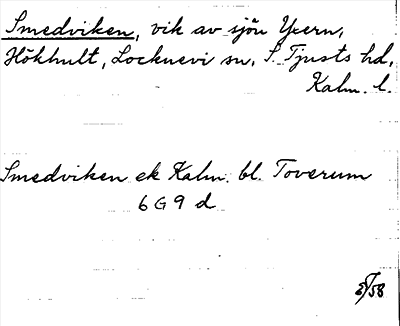 Smedviken, vik av sjön Yxern,
Hökhult, Locknevi sn, S. Tjusts hd,
Kalm. l.
Smedviken ek Kalm. bl. Toverum
6 G 9 d
58